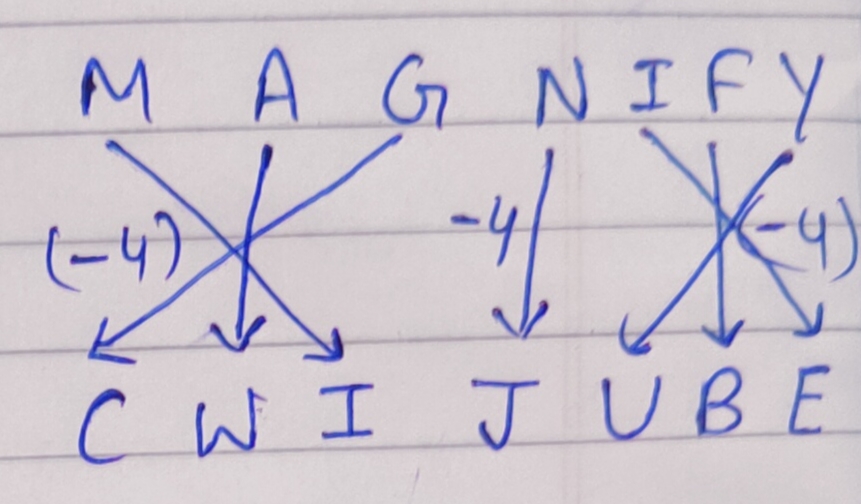 M A G N I F Y
(-4) -4 (-4)
C W I J U B E